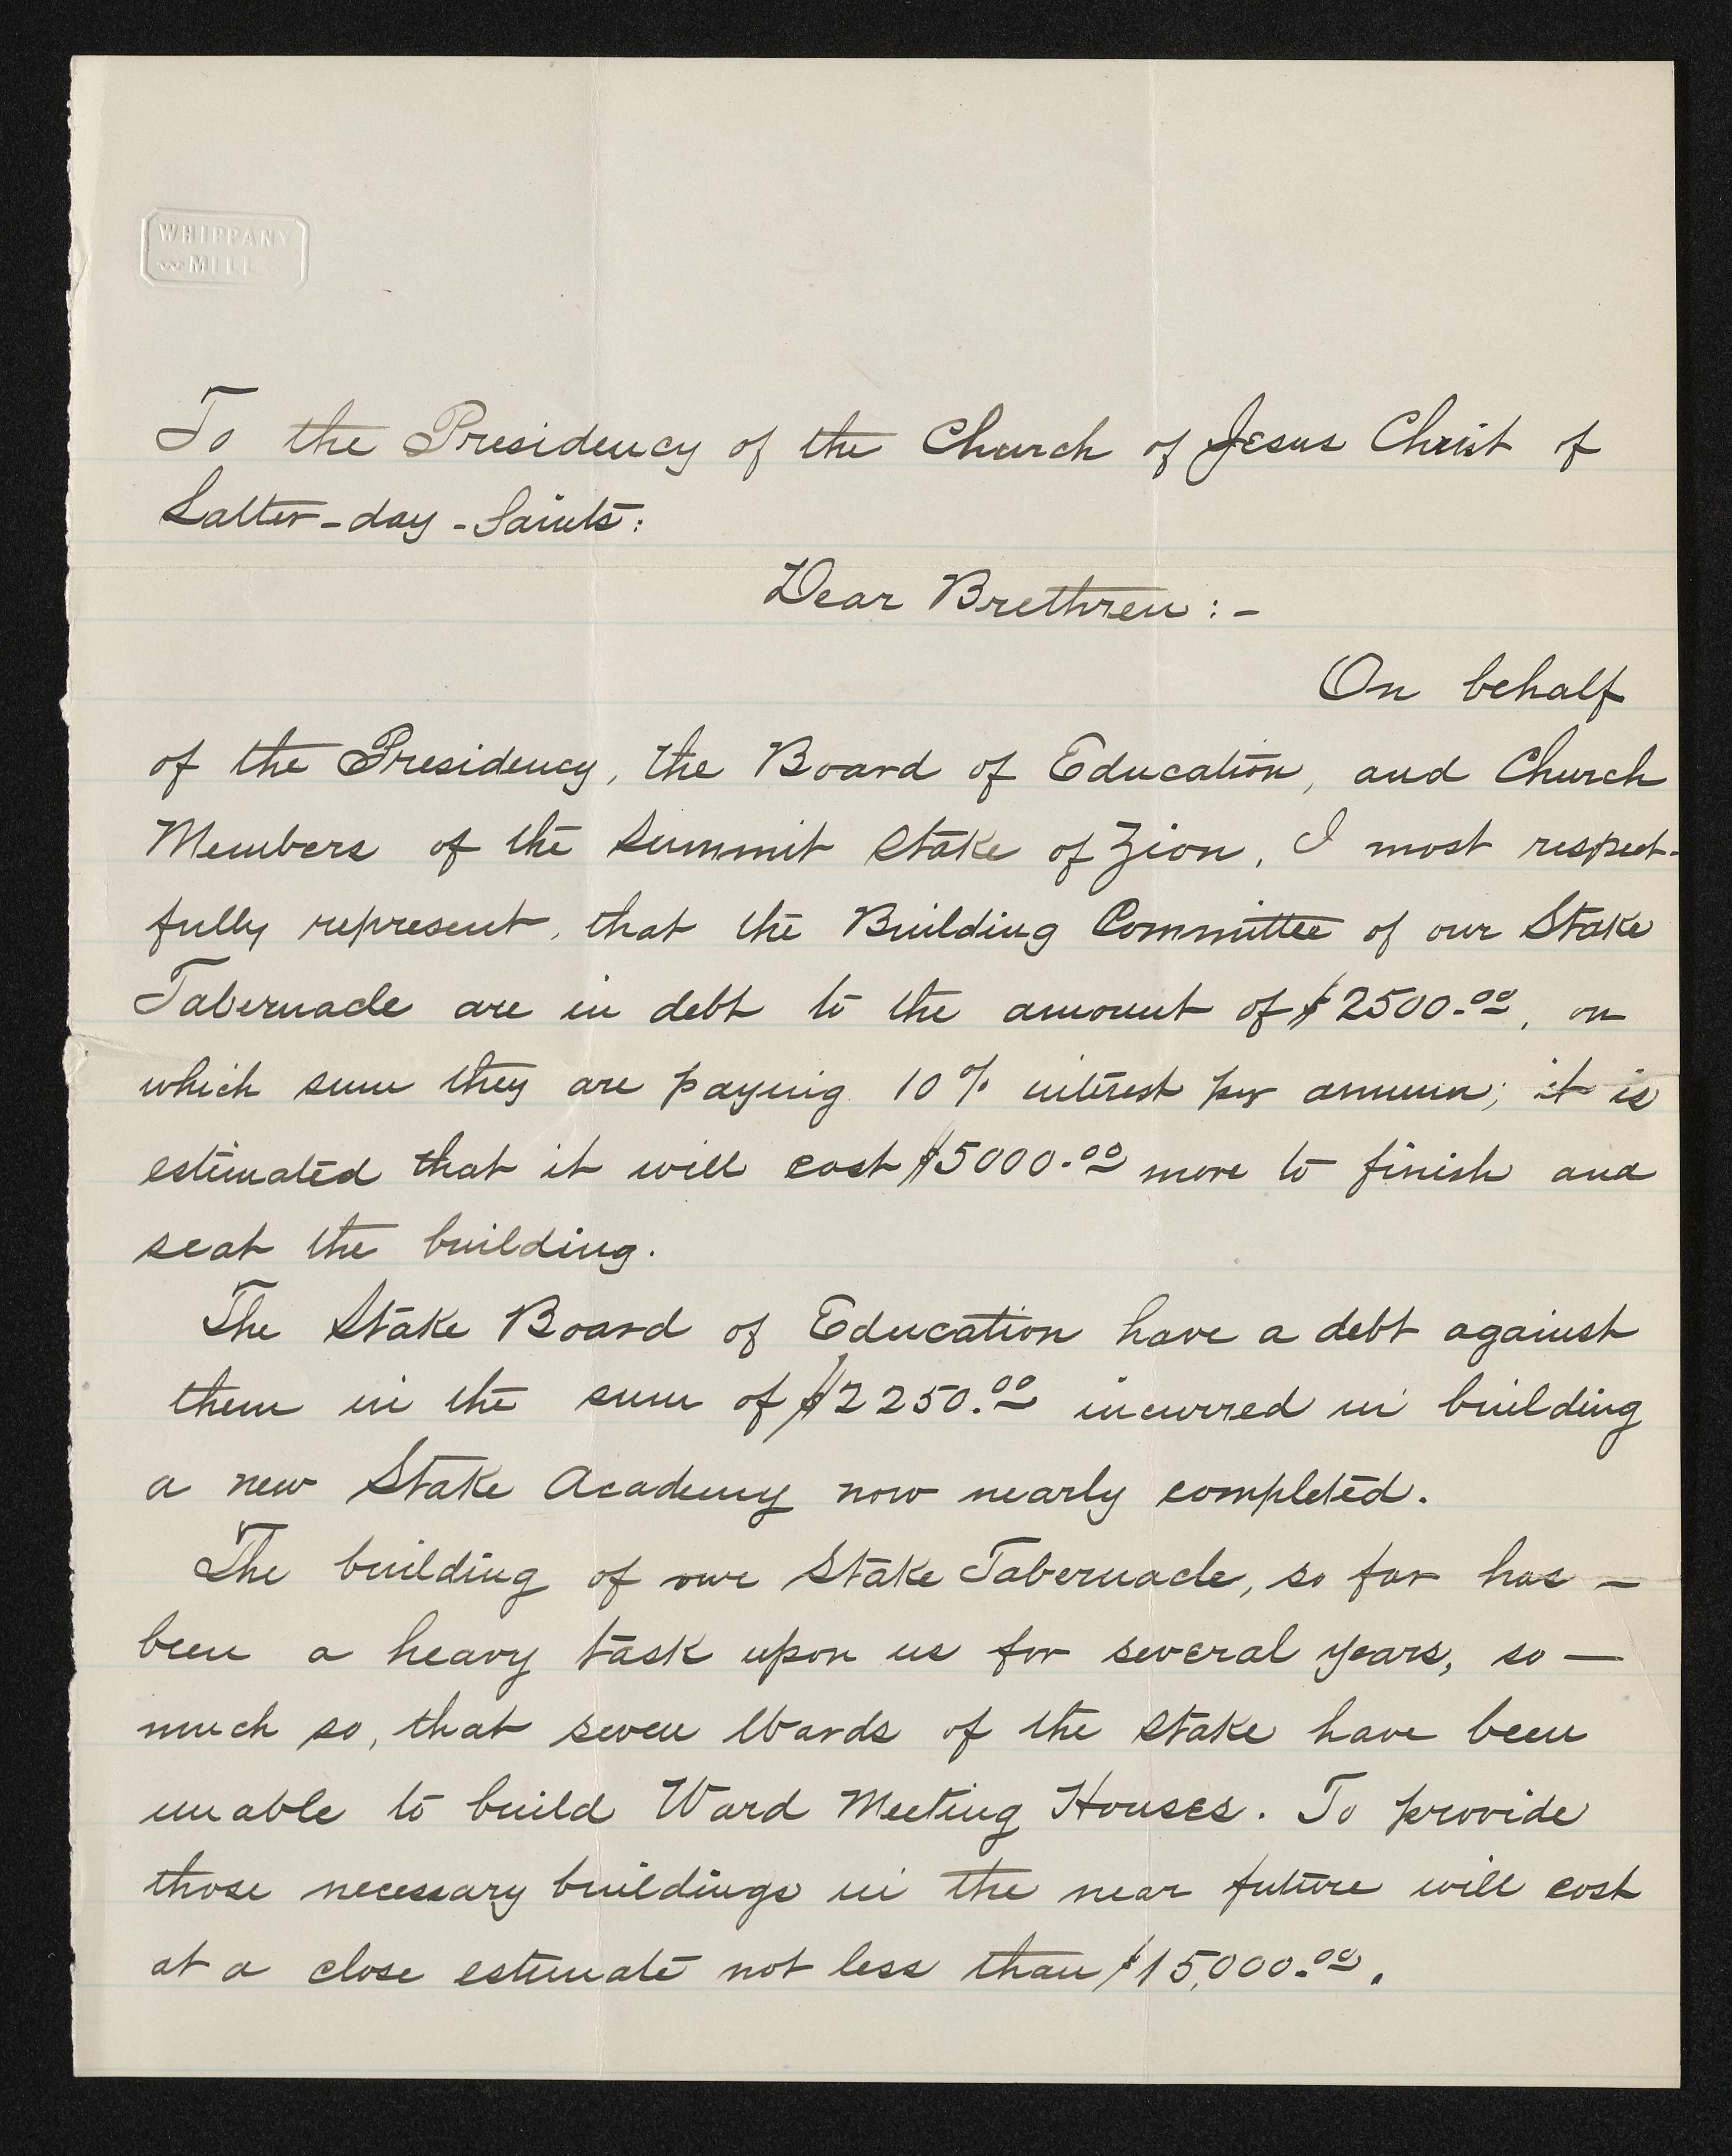 WHIPPANY
MILL
To the Presidency of the Church of Jesus Christ of
Latter-day-Saints:
Dear Brethren :-
On behalf
of the Presidency, the Board of Education, and Church
Members of the Summit Stake of Zion, I most respect-
fully represent, that the Building Committee of our Stake
Tabernacle are in debt to the amount of $2500.00, on
which sum they are paying 10% interest per annum; it is
estimated that it will cost $5000.00 more to finish and
seat the building.
The Stake Board of Education have a debt against
them in the sum of $2250.00 incurred in building
a new Stake Academy now nearly completed.
The building of our Stake Tabernacle, so far has –
been a heavy task upon us for several years, so —
much so, that seven Wards of the Stake have been
unable to build Ward Meeting Houses. To provide
those necessary buildings in the near future will cost
at a close estimate not less than $15,000.00.